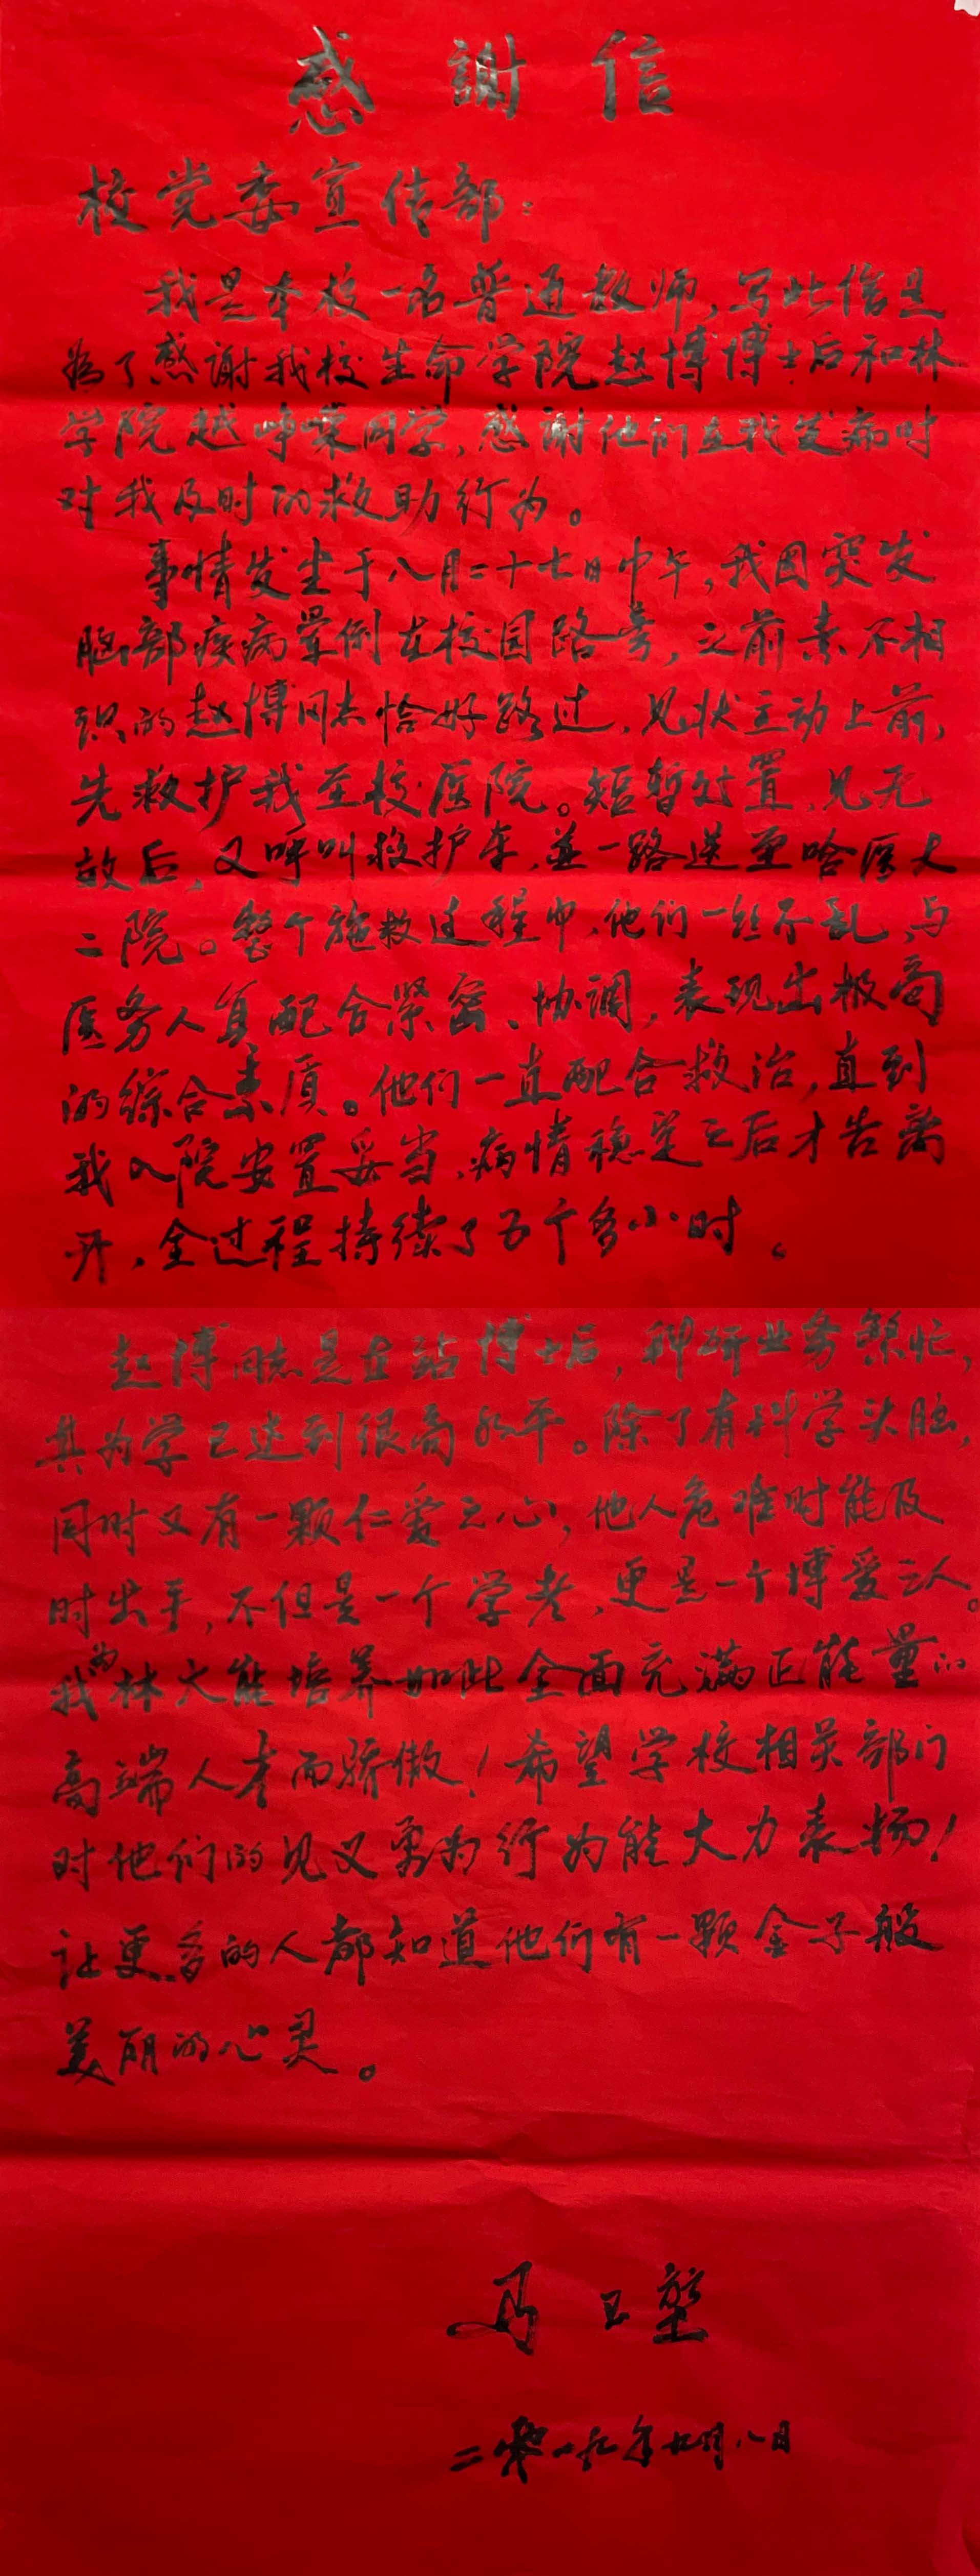 感謝信
校党委宣传部：
我是本校一名普通教师，写此信是
為了感谢我校生命学院赵博博士后和林
学院越峥嵘同学，感谢他们在我发病时
对我及时的救助行为。
事情发生于八月二十七日中午，我因突发
脑部疾病晕倒在校园路旁，之前素不相
识的赵博同志恰好路过，见状主动上前，
先救护我至校医院。短暂处置，见无
效后，又呼叫救护车，並一路送至哈医大
二院。整个施救过程中，他们一丝不乱，与
医务人员配合紧密、协调，表现出极高
的综合素质。他们一直配合救治，直到
我入院安置妥当，病情稳定之后才告离
开，全过程持续了五个多小时。
赵博同志是在站博士后，科研业务繁忙，
其为学已达到很高水平。除了有科学头脑，
同时又有一颗仁爱之心，他人危难时能及
时出手，不但是一个学者，更是一个博爱之人。
我为林大能培养如此全面充满正能量的
高端人才而骄傲！希望学校相关部门
对他们的见义勇为行为能大力表扬！
让更多的人都知道他们有一颗金子般
美丽的心灵。
马卫
二零一九年九月八日